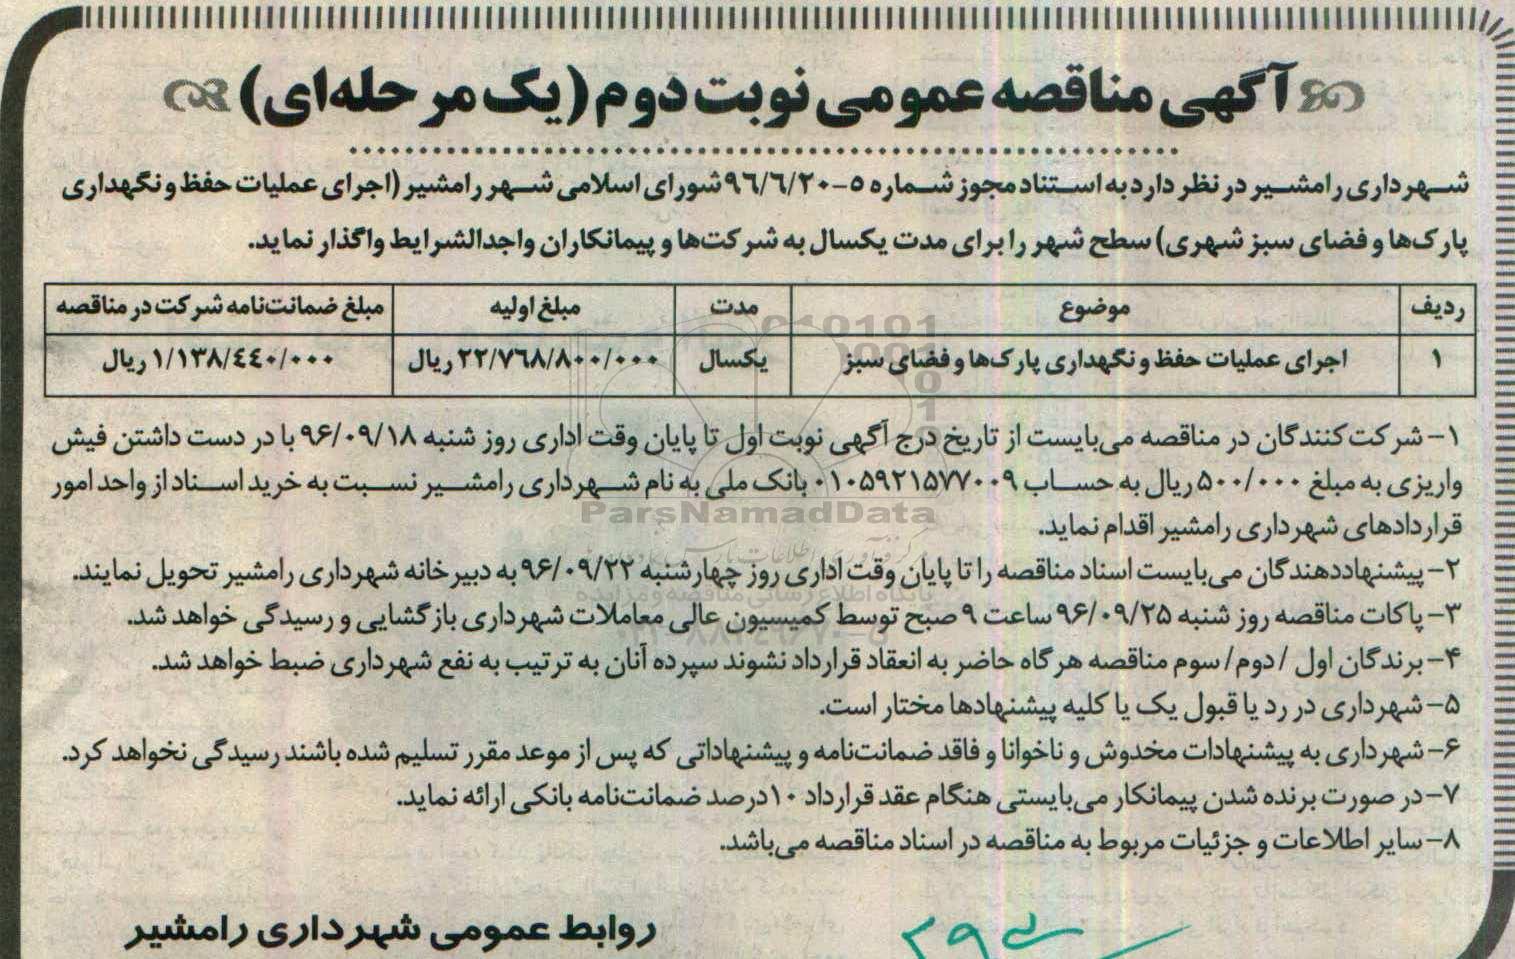 آگهی مناقصه عمومی نوبت دوم (یک مرحله‌ای)
شهرداری رامشیر در نظر دارد به استناد مجوز شماره ۵-۹۶/۶/۲۰ شورای اسلامی شهر رامشیر (اجرای عملیات حفظ و نگهداری
پارک‌ها و فضای سبز شهری) سطح شهر را برای مدت یکسال به شرکت‌ها و پیمانکاران واجدالشرایط واگذار نماید.
ردیف موضوع مدت مبلغ اولیه مبلغ ضمانت‌نامه شرکت در مناقصه
۱ اجرای عملیات حفظ و نگهداری پارک‌ها و فضای سبز یکسال ۲۲/۷۶۸/۸۰۰/۰۰۰ ریال ۱/۱۳۸/۴۴۰/۰۰۰ ریال
۱- شرکت‌کنندگان در مناقصه می‌بایست از تاریخ درج آگهی نوبت اول تا پایان وقت اداری روز شنبه ۹۶/۰۹/۱۸ با در دست داشتن فیش
واریزی به مبلغ ۵۰۰/۰۰۰ ریال به حساب ۰۱۰۵۹۲۱۵۷۷۰۰۹ بانک ملی به نام شهرداری رامشیر نسبت به خرید اسناد از واحد امور
قراردادهای شهرداری رامشیر اقدام نماید.
ParsNamadData
۲- پیشنهاددهندگان می‌بایست اسناد مناقصه را تا پایان وقت اداری روز چهارشنبه ۹۶/۰۹/۲۲ به دبیرخانه شهرداری رامشیر تحویل نمایند.
پایگاه اطلاع رسانی مناقصه و مزایده
۳- پاکات مناقصه روز شنبه ۹۶/۰۹/۲۵ ساعت ۹ صبح توسط کمیسیون عالی معاملات شهرداری بازگشایی و رسیدگی خواهد شد.
۴- برندگان اول / دوم/ سوم مناقصه هرگاه حاضر به انعقاد قرارداد نشوند سپرده آنان به ترتیب به نفع شهرداری ضبط خواهد شد.
۵- شهرداری در رد یا قبول یک یا کلیه پیشنهادها مختار است.
۶- شهرداری به پیشنهادات مخدوش و ناخوانا و فاقد ضمانت‌نامه و پیشنهاداتی که پس از موعد مقرر تسلیم شده باشند رسیدگی نخواهد کرد.
۷- در صورت برنده شدن پیمانکار می‌بایستی هنگام عقد قرارداد ۱۰درصد ضمانت‌نامه بانکی ارائه نماید.
۸- سایر اطلاعات و جزئیات مربوط به مناقصه در اسناد مناقصه می‌باشد.
روابط عمومی شهرداری رامشیر